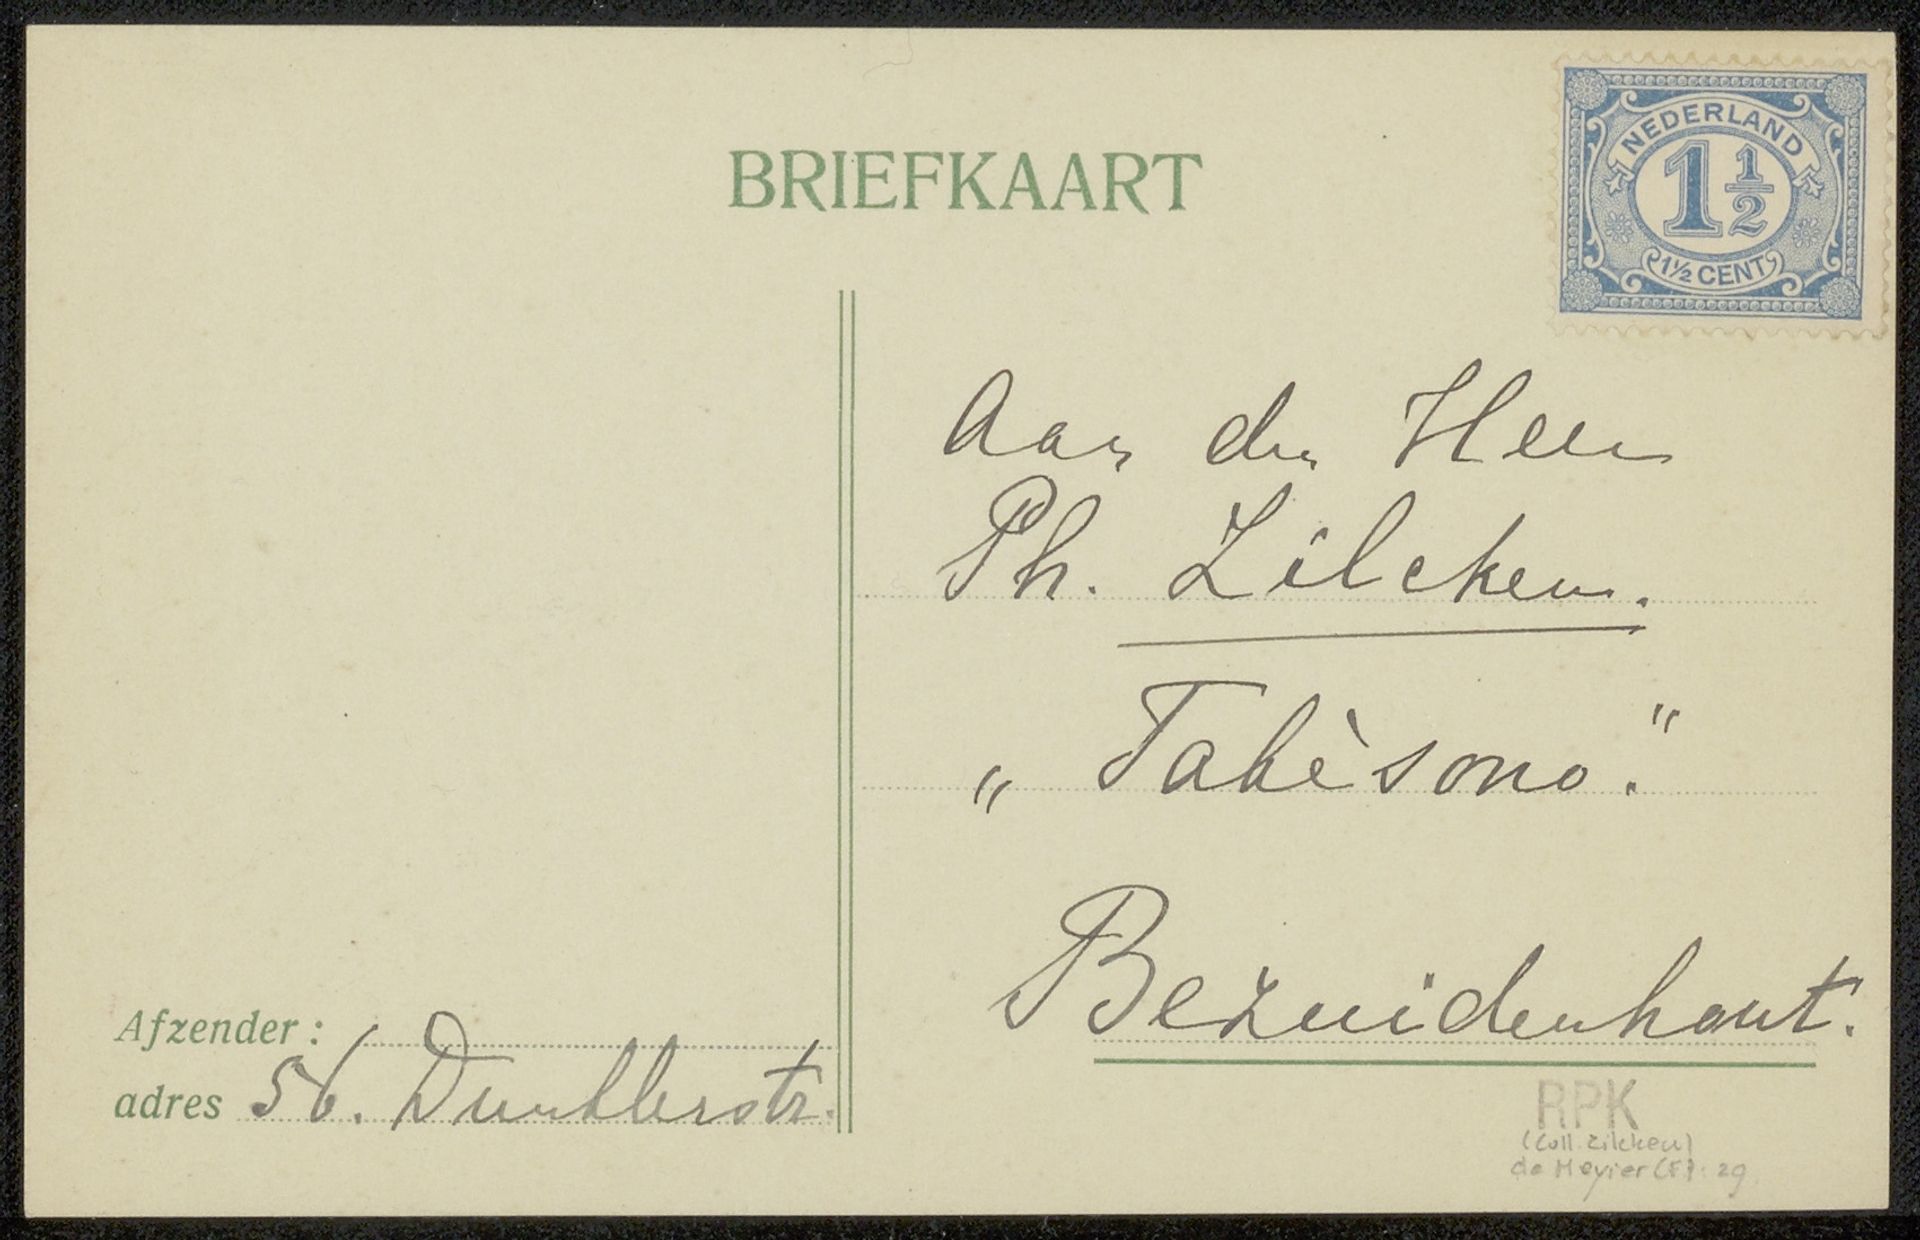 BRIEFKAART
NEDERLAND
1 1/2
1½ CENT
Aan den Heer
Ph. Zilcken.
„ Takèsono."
Bezuidenhout.
Afzender :
adres 56. Duncklerstr.
RPK
(Coll. Zilcken)
de Meyier (F): 29